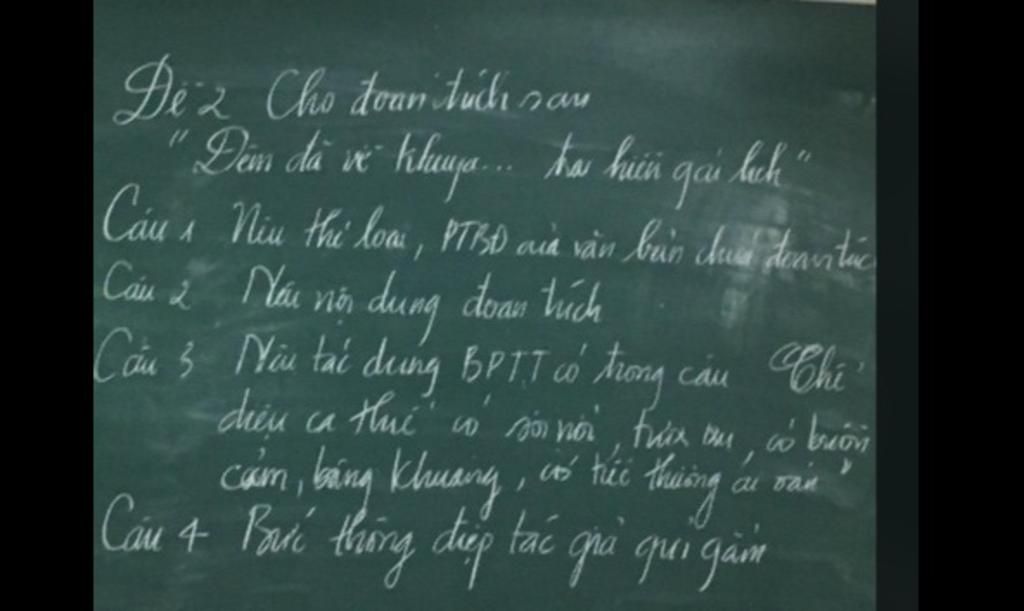 Đề 2 Cho đoạn trích sau
"Đêm đã về khuya... trai hiền gái lịch"
Câu 1 Nêu thể loại, PTBĐ của văn bản chứa đoạn trích
Câu 2 Nêu nội dung đoạn trích
Câu 3 Nêu tác dung BPTT có trong câu "Thể
điệu ca Huế có sôi nổi, tươi vui, có buồn
cảm, bâng khuâng, có tiếc thương ai oán"
Câu 4 Bức thông điệp tác giả gửi gắm